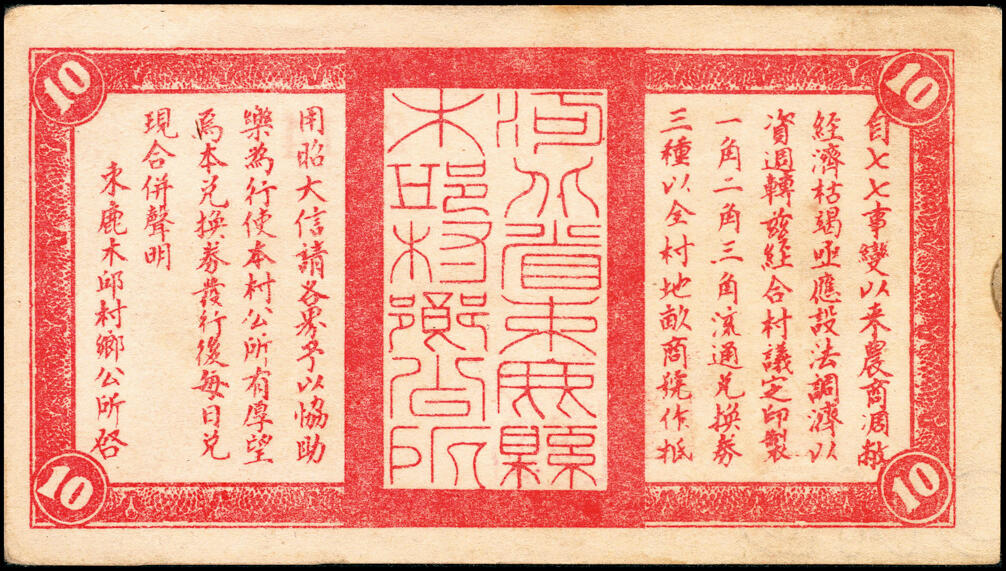 自七七事變以来農商凋敝
經濟枯竭亟應設法調濟以
資週轉茲經合村議定印製
一角二角三角流通兑換券
三種以全村地畝商號作抵
河北省束鹿縣
木邱村鄉公所
用昭大信請各界予以協助
樂為行使本村公所有厚望
焉本兑換券發行後每日兑
現合併聲明
束鹿木邱村鄉公所啓
10
10
10
10